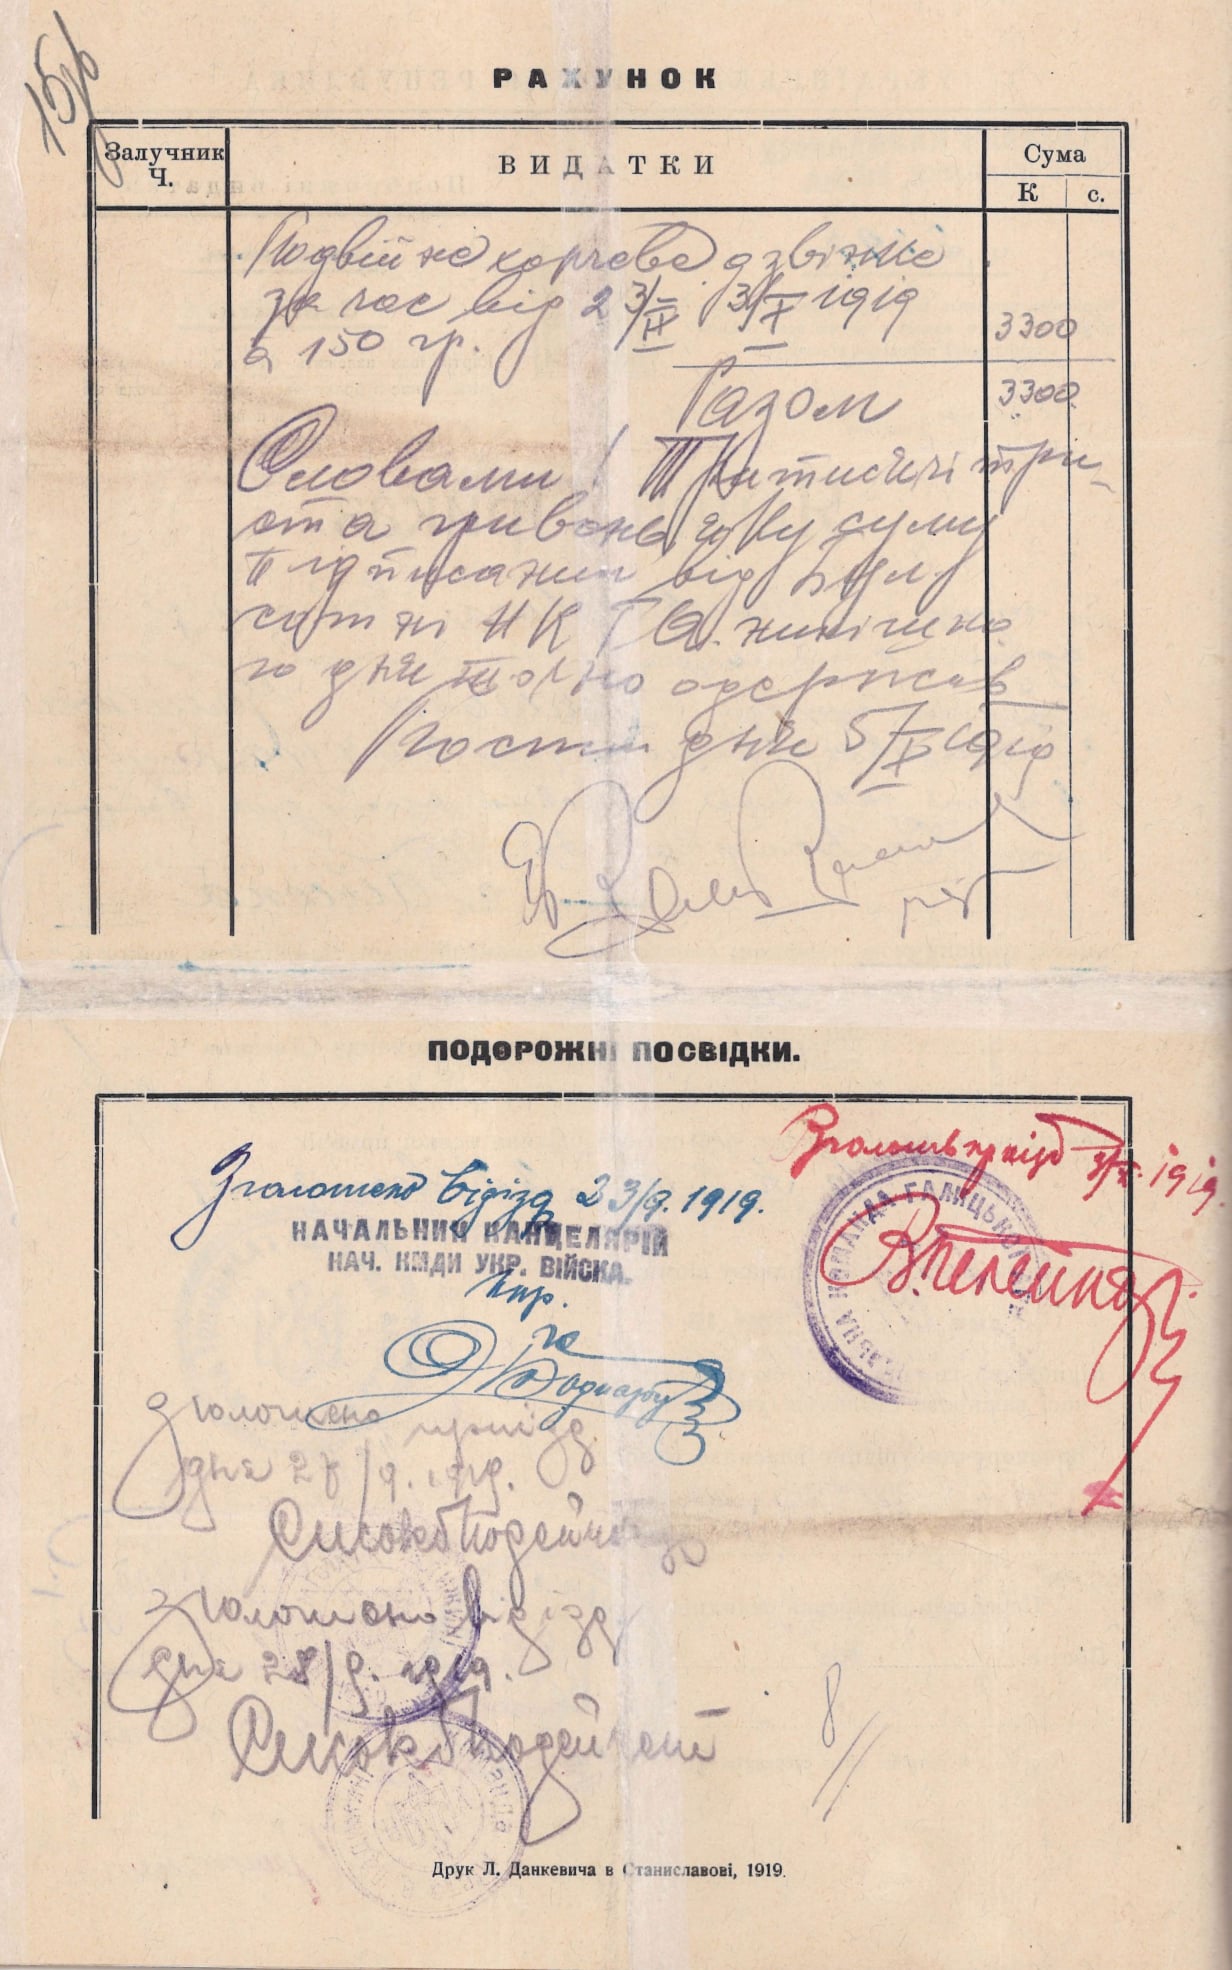 РАХУНОК
Залучник Ч.
ВИДАТКИ
Сума
К
с.
Подвійне харчеве
за час від 23/IX 3/X 1919
à 150 гр.
3300
Разом
3300
Словами! Три тисячі три-
ста гривень цю суму
Підписаний від
сотні Н К Г А. нинішно
го дня точно одержав
дня 5/X 1919
ПОДОРОЖНІ ПОСВІДКИ.
Зголошено відїзд 23/9. 1919.
НАЧАЛЬНИК КАНЦЕЛЯРІЙ
НАЧ. КМДИ УКР. ВІЙСКА.
Зголошено приїзд
дня 27/9. 1919.
Зголошено відїзд
дня 28/9. 1919.
Зголошено приїзд 1919.
КОМАНДА ГАЛИЦЬКОЇ
8
Друк Л. Данкевича в Станиславові, 1919.